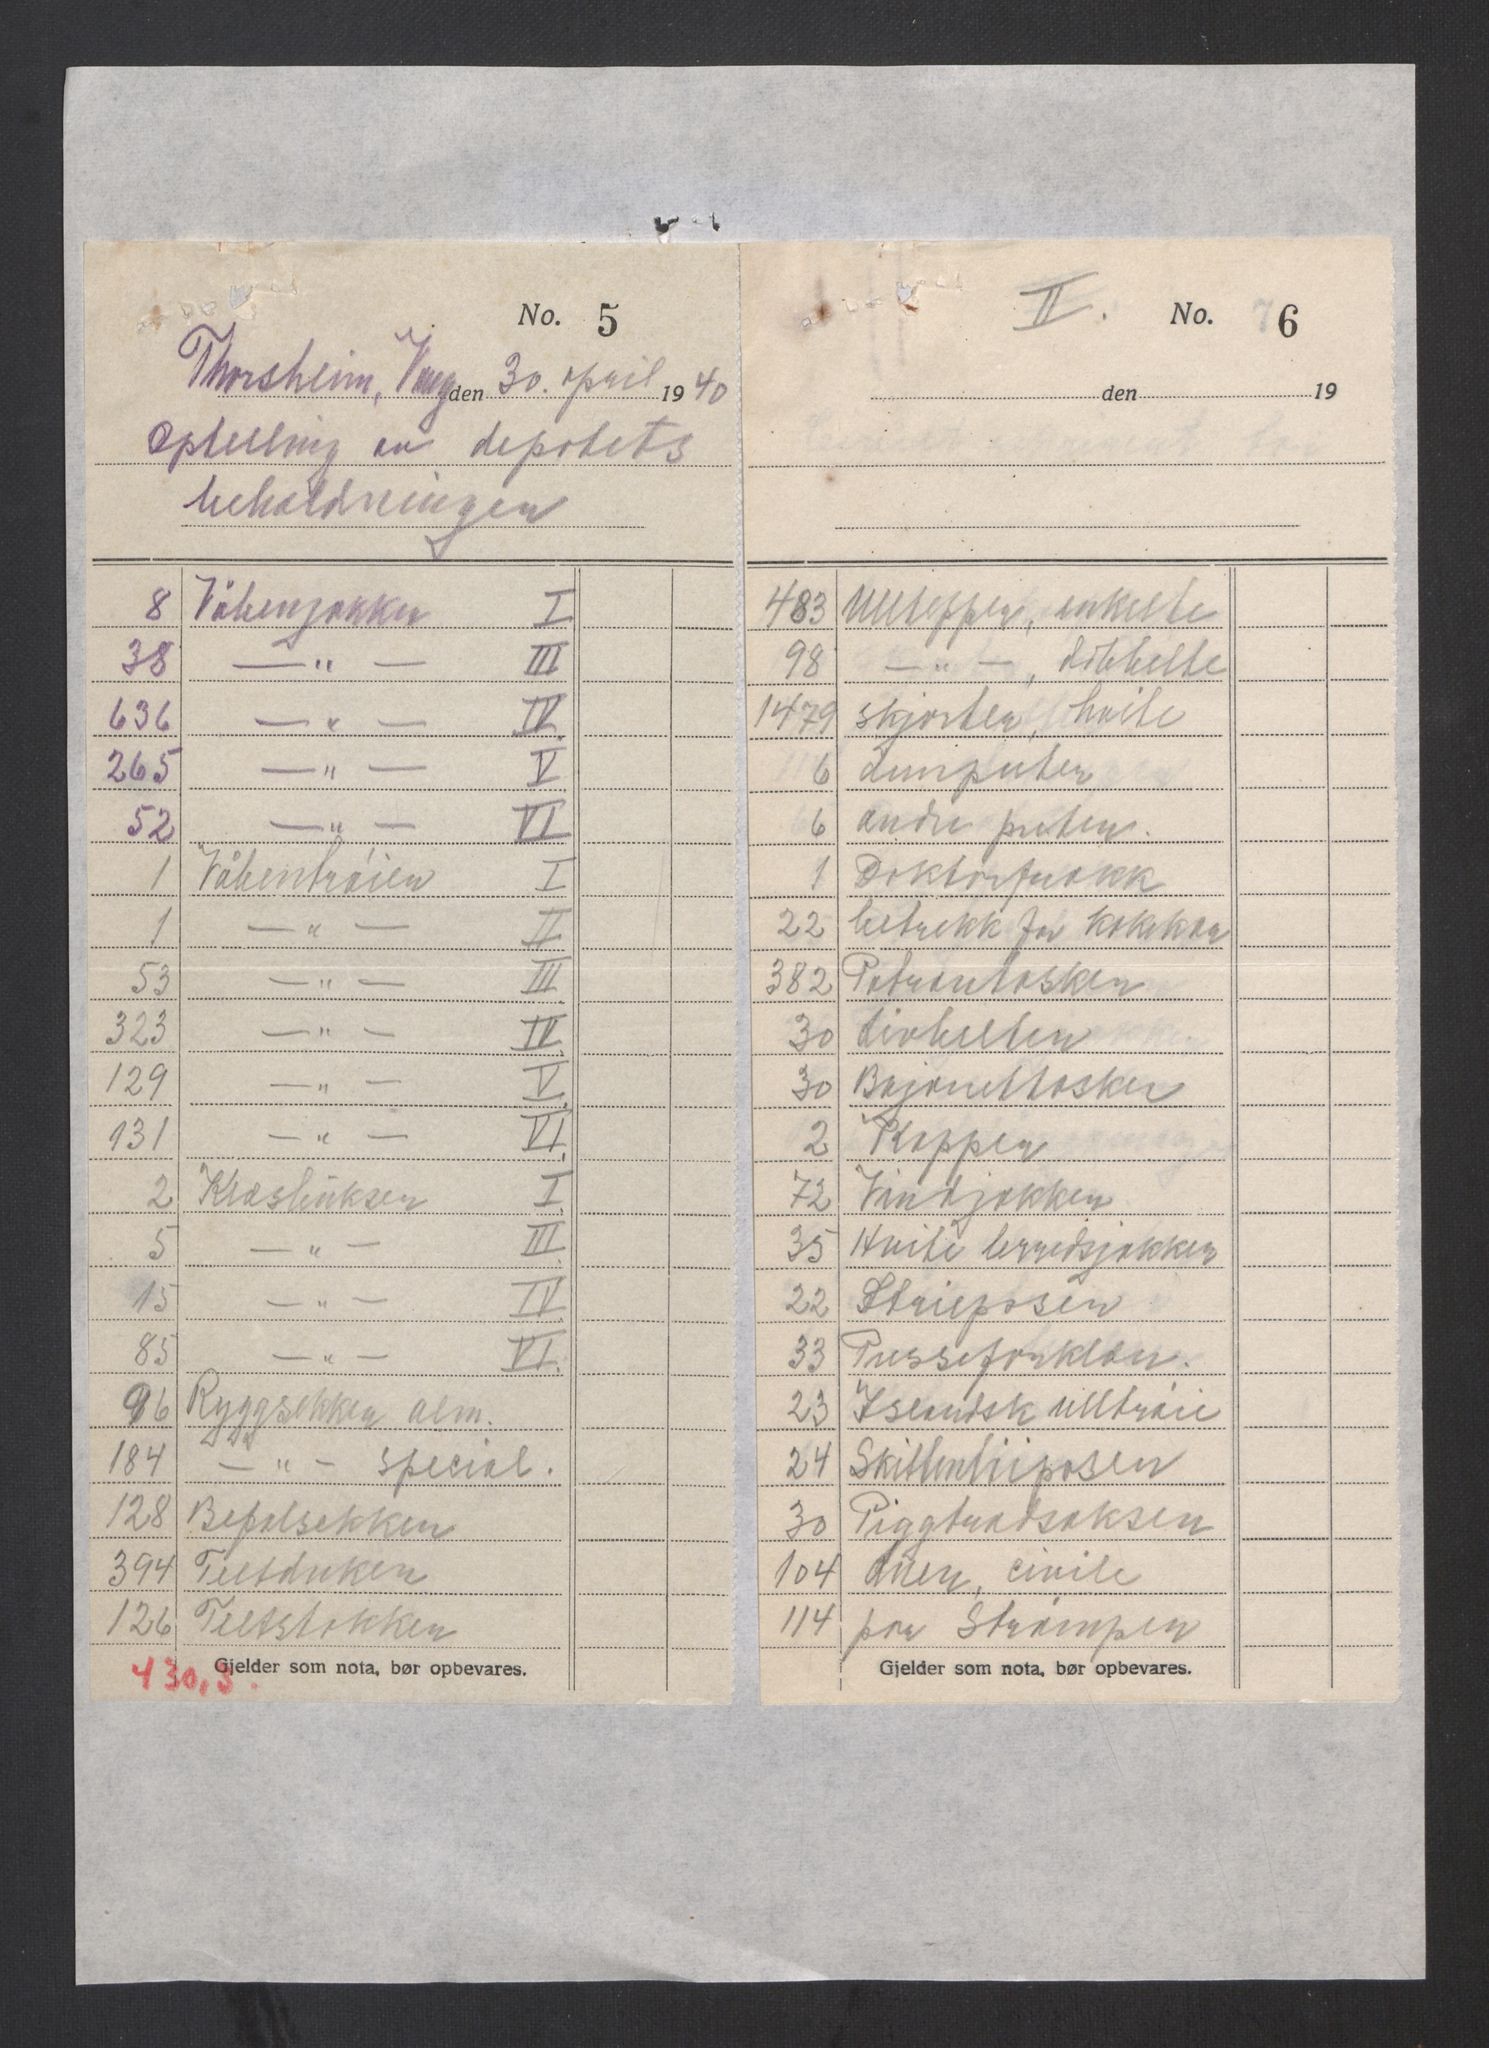 No. 5
Thorsheim, Vang den 30. april 1940
Optelling av depotets
beholdningen
8 Våbenjakker I
38 —"— III
636 —"— IV.
265 —"— V
52 —"— VI
1 Våbentrøier I
1 —"— II
53 —"— III
323 —"— IV.
129 —"— V.
131 —"— VI.
2 Klæsbukser I.
5 —"— III.
15 —"— IV.
85 —"— VI.
96 Ryggsekker alm.
184 —"— special.
128 Befalsekker
394 Teltduker
126 Teltstokker
Gjelder som nota, bør opbevares.
430,3.
II. No. 6
den 19
483 Ulltepper, enkelte
98 —"—, dobbelte
1479 skjorter, hvite
6 dunputer
6 andre puter.
1 Doktorfrakk
22 betrekk for kokekar
382 Patrontasker
30 Livbelter
30 Bajonettasker
2 Kapper
72 Vindjakker
35 Hvite lerredsjakker
22 Strieposer
33 Pusseforklær.
23 Islandsk ulltrøie
24 Skittentøiposer
30 Piggtradsakser
104 Luer, civile
114 par Strømper
Gjelder som nota, bør opbevares.